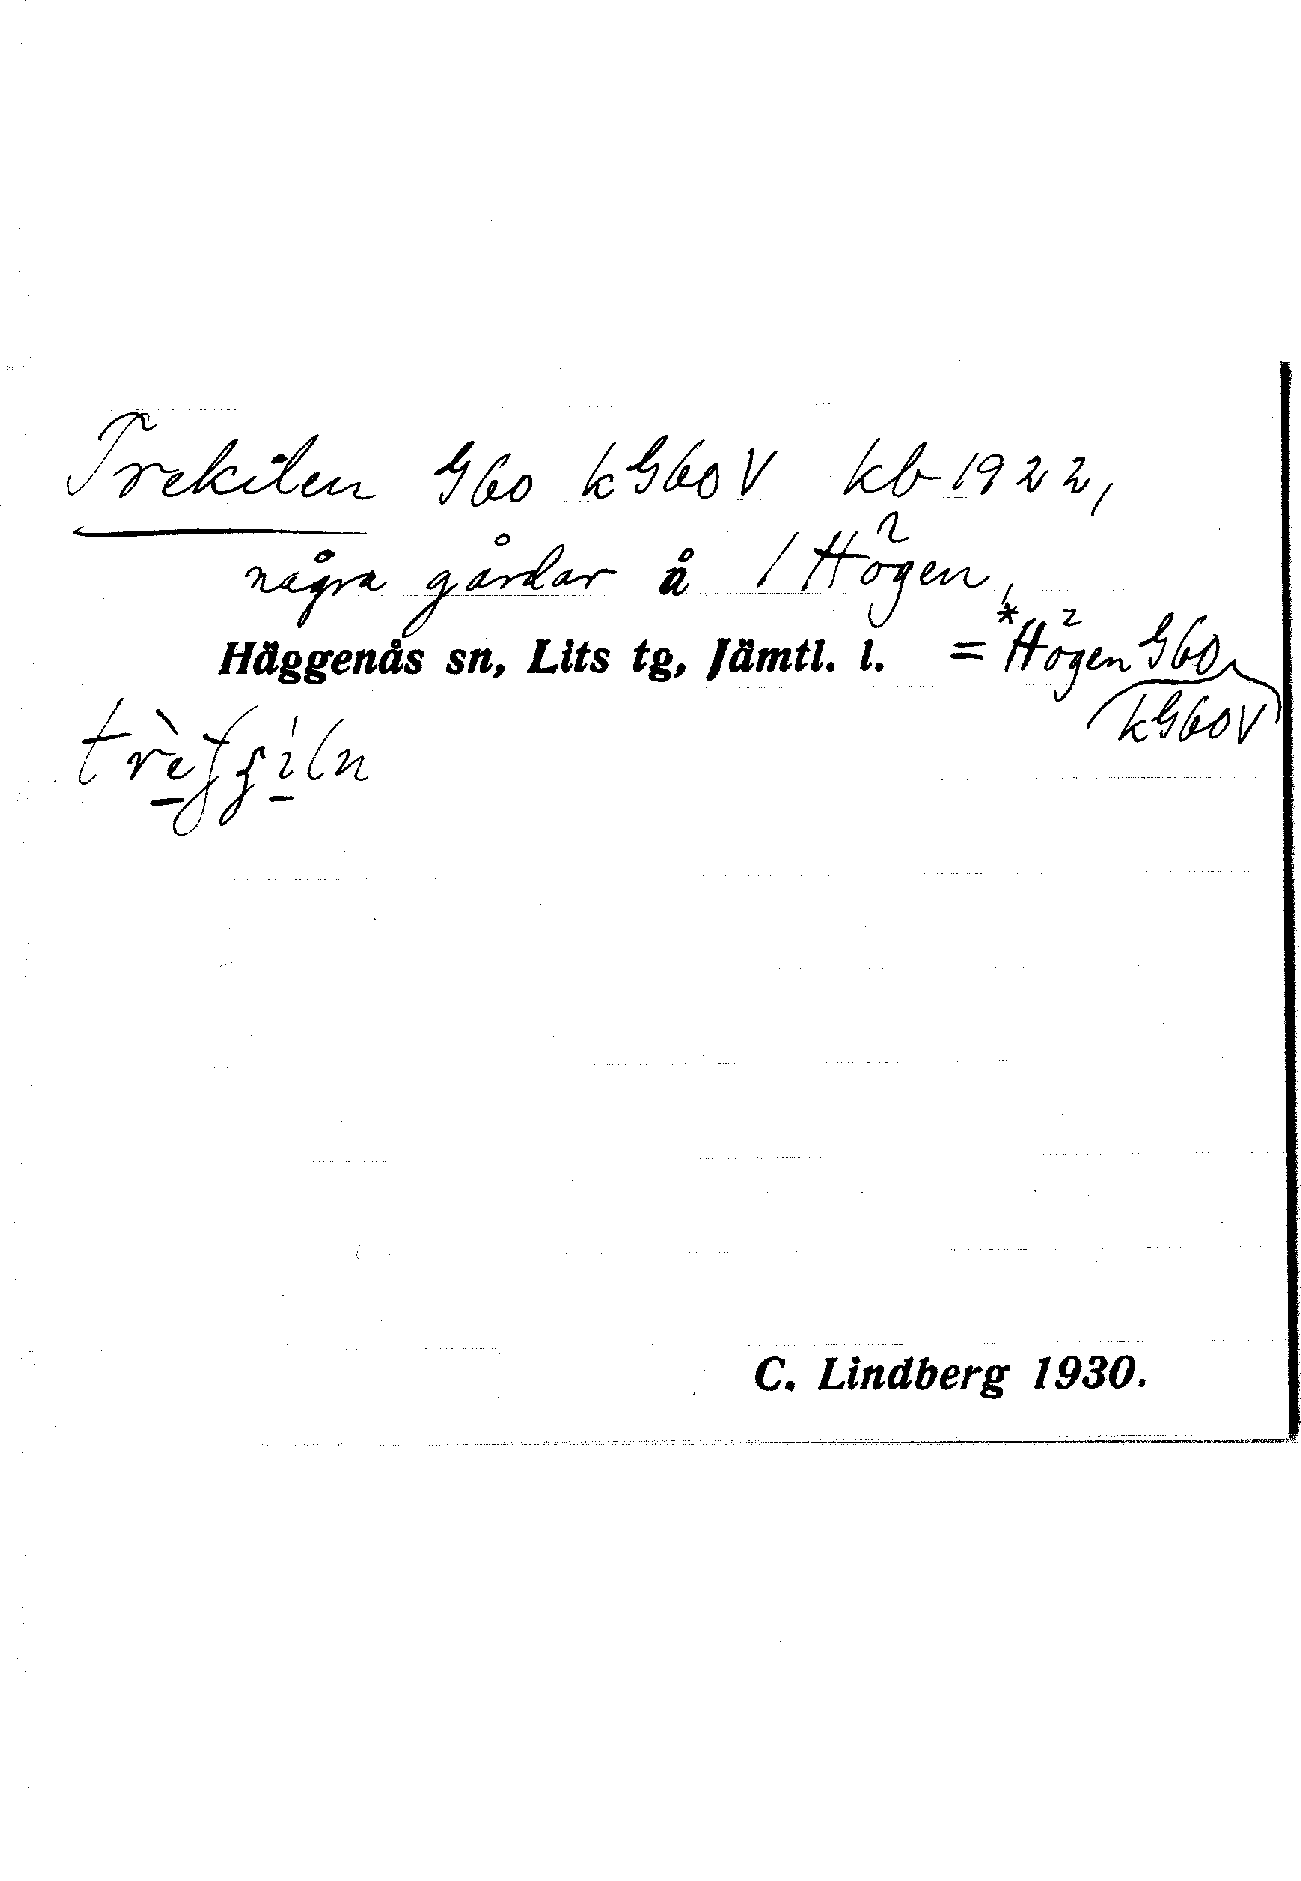 Trekilen G60 kG60V kb 1922,
några gårdar å 1 Högen,
Häggenås sn, Lits tg, Jämtl. l. = *Högen G60
kG60V
C. Lindberg 1930.